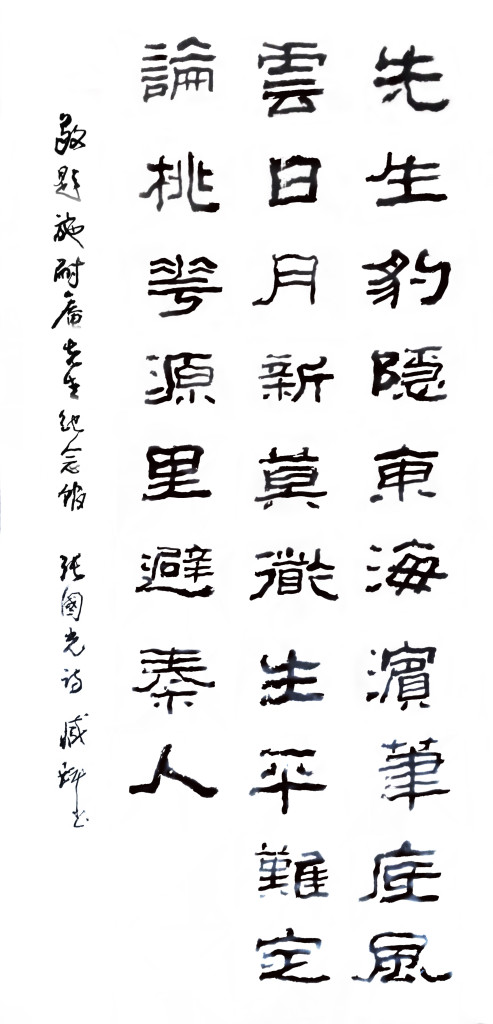 先生豹隱東海濱筆底風
雲日月新莫徵生平難定
論桃花源里避秦人
敬題施耐庵先生紀念館 張國光詩 臧科書